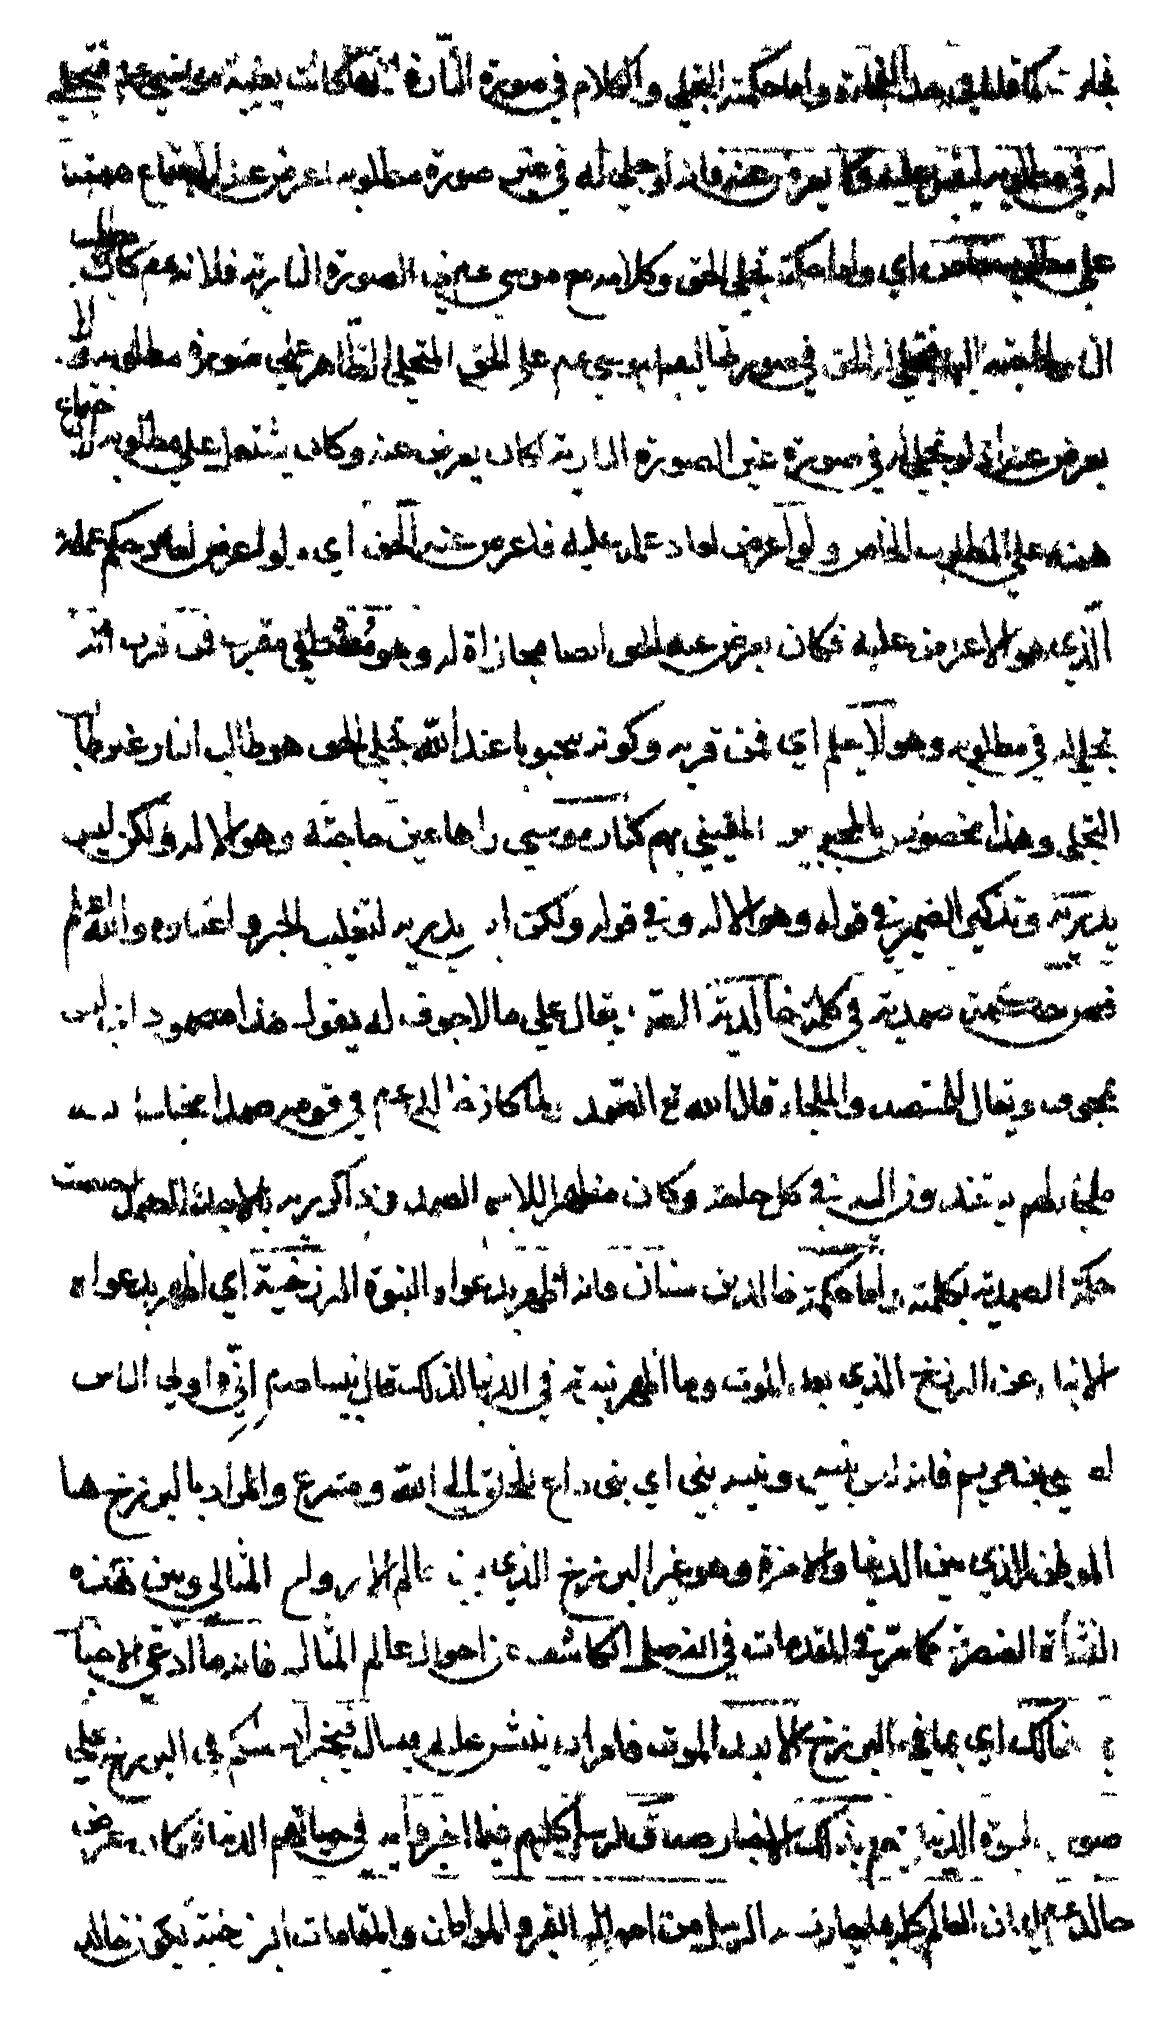 واما حكمة التجلي والكلام في صورة النار فلانها كانت بغية موسى عم فتجلى
له في مطلوبه ليقبل عليه ولا يعرض عنه فانه لو تجلى له في غير صورة مطلوبه اعرض عنه لاجتماع همته
على مطلوب خاص اي واما حكمة تجلي الحق وكلامه مع موسى عم في الصورة النارية فلانه عم كان طالب
النار فتجلى له الحق في صورتها ليقبل موسى عم على الحق المتجلي الظاهر على صورة مطلوبه ولا
يعرض عنه اذ لو تجلى له في صورة غير الصورة النارية لكان يعرض عنه وكان يشتغل على مطلوبه لاجتماع
همته على المطلوب الخاص ولو اعرض لعاد عمله عليه فاعرض عنه الحق اي ولو اعرض لعاد حكم عمله
الذي هو الاعراض عليه فكان يعرض عنه الحق ايضا مجازاة له وهو مصطفى مقرب فمن قربه انه
تجلى له في مطلوبه وهو لا يعلم اي فمن قربه وكونه محبوبا عند الله تجلى الحق وهو طالب النار غير طالب
التجلي وهذا مخصوص بالمحبوبين المعتنى بهم كنار موسى راها عين حاجته وهو الاله ولكن ليس
يدريه وتذكير الضمير في قوله وهو الاله وفي قوله ولكن ليس يدريه لتغليب الخبر واعتباره والله اعلم
فص حكمة صمدية في كلمة خالدية الصمد يقال على ما لا جوف له يقول هذا مصمود اي ليس
بمجوف ويقال للمقصد والملجاء قال الله تع الصمد ولما كان خالد عم في قومه صمدا محتاجا اليه
ملجئا لهم يستند ون اليه في كل حاجة وكان مظهرا للاسم الصمد وذاكر ربه بالاحد الصمد اختصت
حكمة الصمدية بكلمته واما حكمة خالد بن سنان فانه اظهر بدعواه النبوة البرزخية اي اظهر بدعواه
الانباء عن البرزخ الذي بعد الموت وما اظهر نبوته في الدنيا لذلك قال نبينا صلعم اني اولى الناس
بعيسى بن مريم فانه ليس بيني وبينه نبي اي نبي داع للخلق الى الله ومشرع والمراد بالبرزخ هنا
الموطن الذي بين الدنيا والاخرة وهو غير البرزخ الذي بين عالم الارواح المثالي وبين هذه
النشأة العنصرية كما مر في المقدمات في الفصل الكاشف عن احوال عالم المثال فانه ما ادعى الاخبار
بما هنالك اي بما في البرزخ الا بعد الموت فامر ان ينبش عليه ويسأل فيخبر ان الحكم في البرزخ على
صورة الحيوة الدنيا فيعلم بذلك الاخبار صدق الرسل كلهم فيما اخبروا به في حياتهم الدنيا فكان غرض
خالد عم ايمان العالم كله بما جاءت به الرسل من احوال القبر والمواطن والمقامات البرزخية ليكون خالد